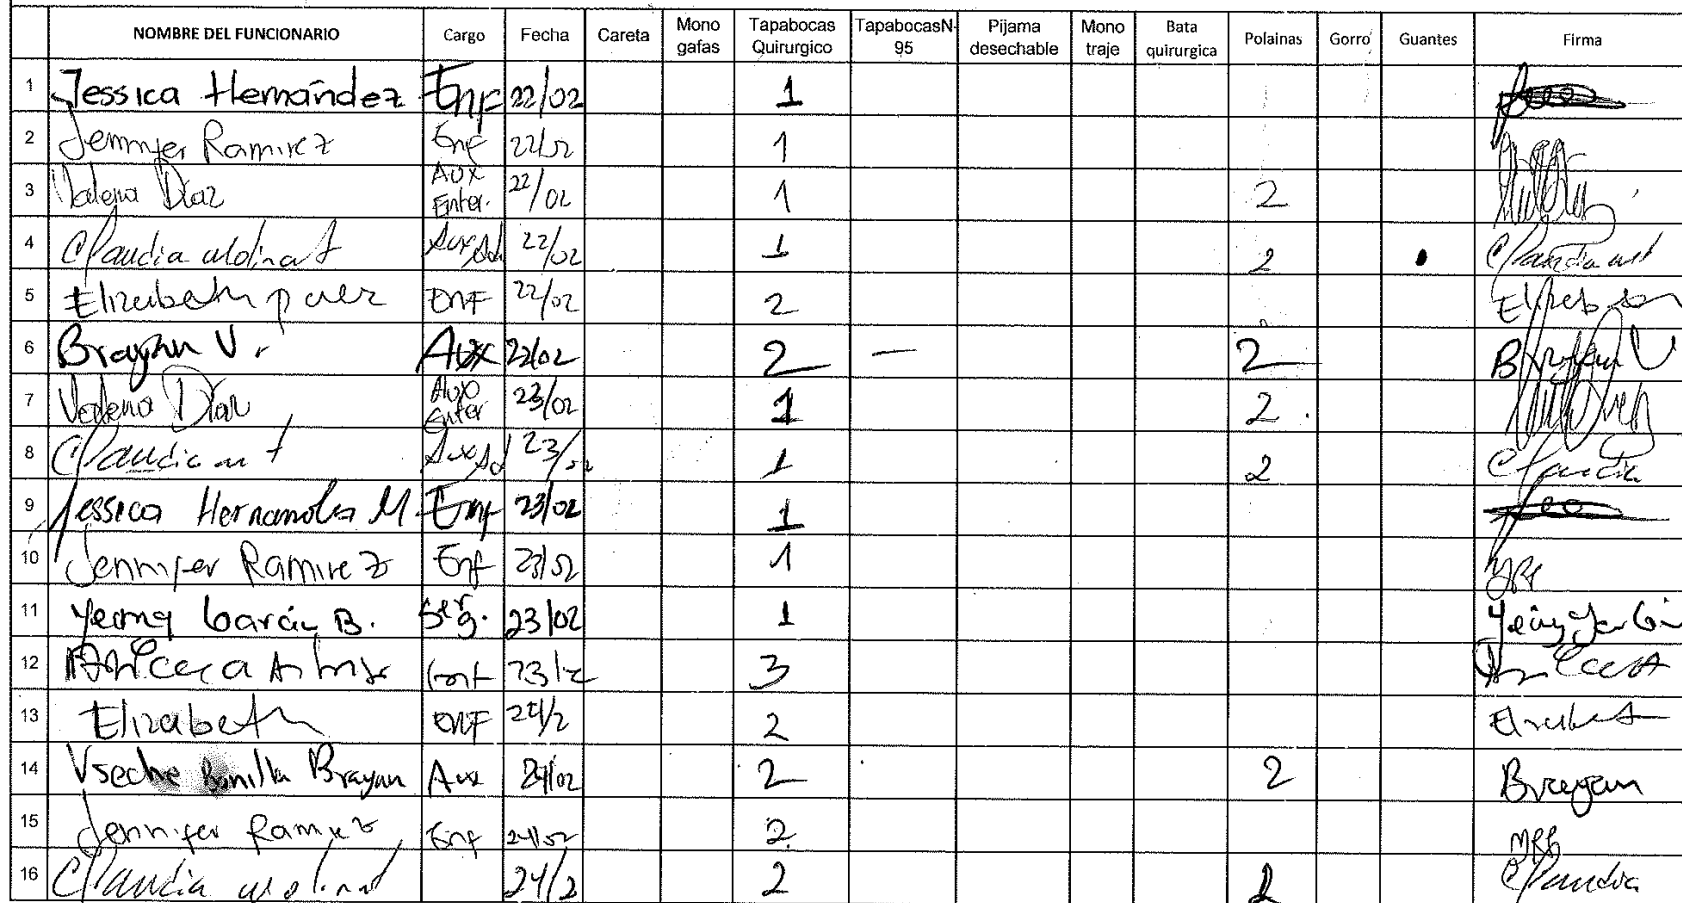 NOMBRE DEL FUNCIONARIO Cargo Fecha Careta Mono gafas Tapabocas Quirurgico TapabocasN-95 Pijama desechable Mono traje Bata quirurgica Polainas Gorro Guantes Firma
1 Jessica Hernández Enf 22/02 1
2 Jennifer Ramirez Enf 22/02 1
3 Valeria Díaz Aux Enfer. 22/02 1 2
4 Claudia Molina 22/02 1 2 Claudia
5 Elizabeth paez ENF 22/02 2
6 Brayan V. Aux 22/02 2 — 2 Brayan V
7 Díaz Enfer 23/02 1 2
8 Claudia 23/02 1 2 Claudia
9 Jessica Hernandez M Enf 23/02 1
10 Jennifer Ramirez Enf 23/02 1
11 García B. 23/02 1
12 3
13 Elizabeth ENF 2
14 Bonilla Brayan Aux 24/02 2 2 Brayan
15 Jennifer Ramirez Enf 24/02 2
16 Claudia 24/2 2 2 Claudia